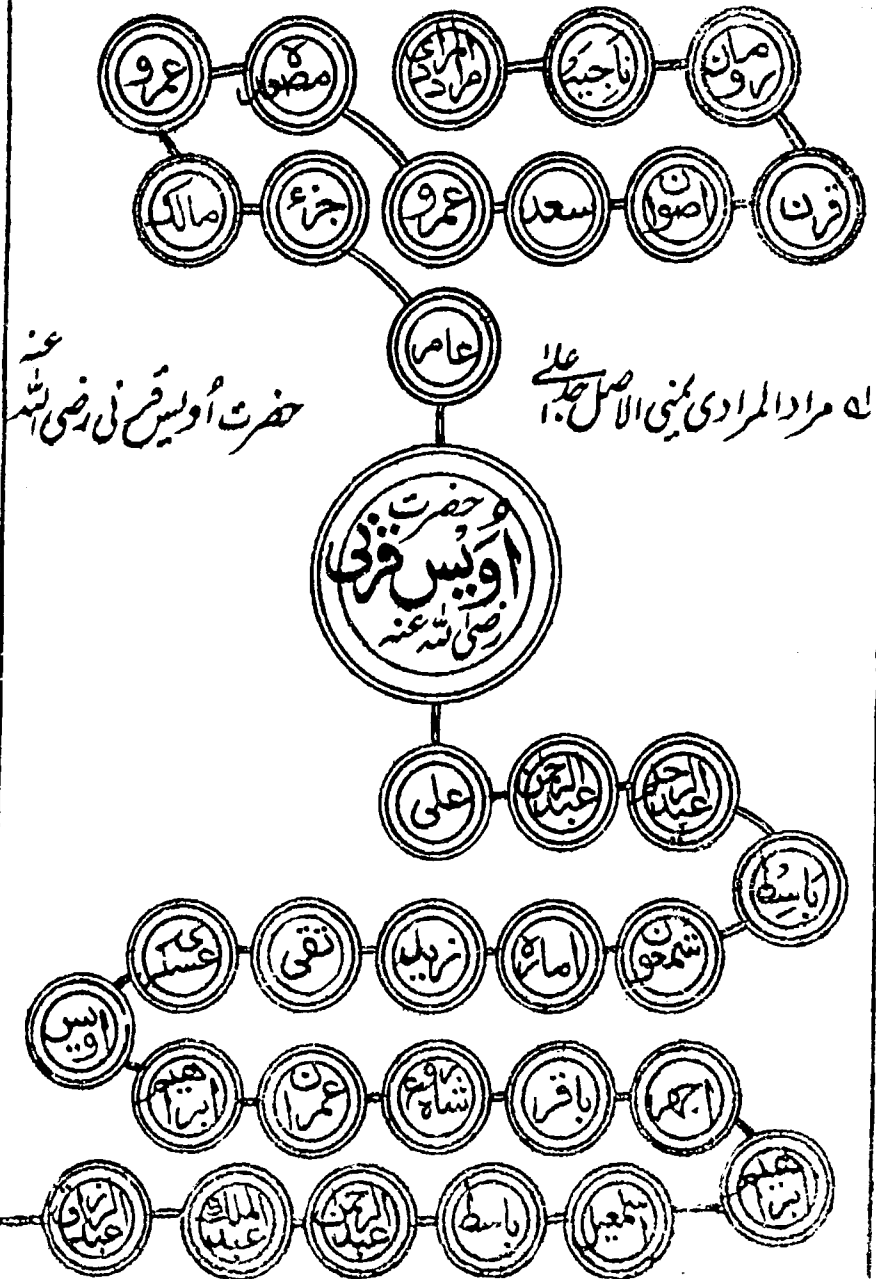 رومان
ناجیہ
المرادی مراد
عمرو
قرن
سعد
عمرو
جزء
مالک
عامر
مراد المرادی یمنی الاصل جد اعلیٰ
حضرت اُویس قرنی رضی اللہ عنہ
حضرت
اُویس قرنی
رضی اللہ عنہ
علی
عبدالرحمن
عبدالرحیم
باسط
شمعون
امارہ
زید
تقی
عسکری
اویس
ابراھیم
عمران
شاہ
باقر
اسمعیل
باسط
عبدالرحمن
عبدالملک
عبدالرزاق